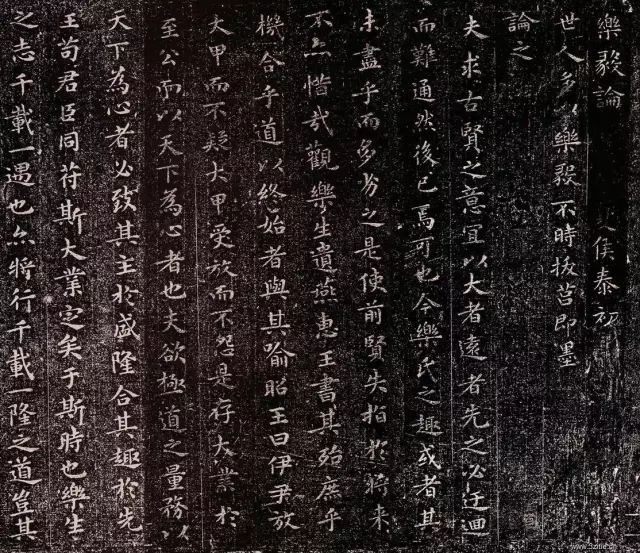 樂毅論 侯泰初
世人多以樂毅不時拔莒即墨
論之
夫求古賢之意宜以大者遠者先之必迂迴
而難通然後已焉可也今樂氏之趣或者其
未盡乎而多劣之是使前賢失指於將來
不亦惜哉觀樂生遺燕惠王書其殆庶乎
機合乎道以終始者與其喻昭王曰伊尹放
大甲而不疑大甲受放而不怨是存大業於
至公而以天下為心者也夫欲極道之量務以
天下為心者必致其主於盛隆合其趣於先
王苟君臣同苻斯大業定矣于斯時也樂生
之志千載一遇也亦將行千載一隆之道豈其